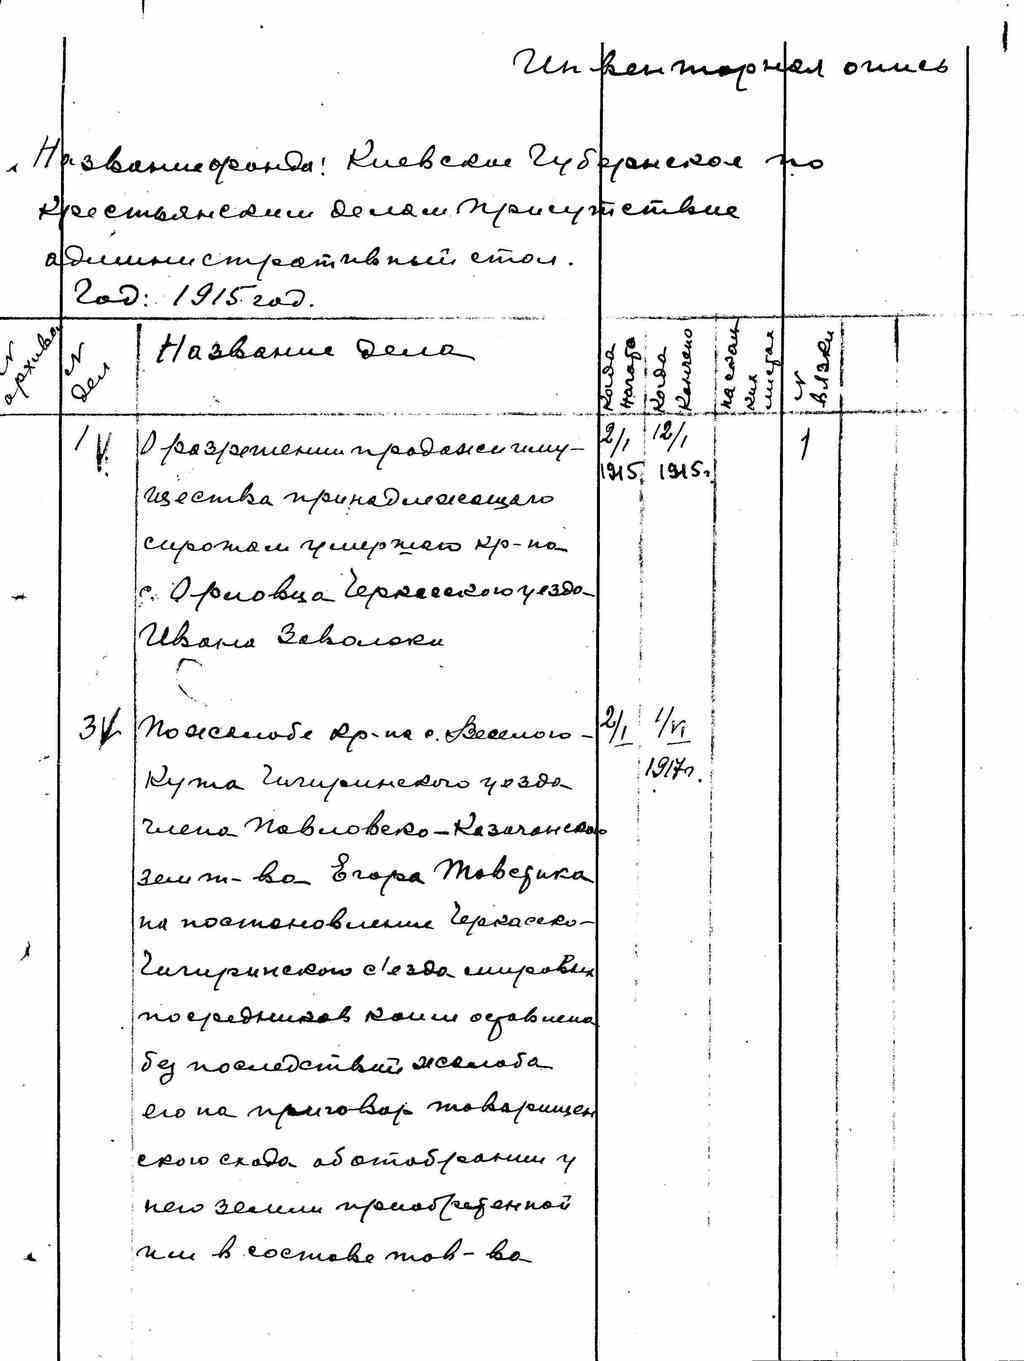 1
Инвентарная опись
Название фонда: Киевское Губернское по
Крестьянским делам Присутствие
административный стол.
Год: 1915 год.
№ архива
№ дел
Название дела
Когда начата
Когда кончено
на скольких листах
№ вязки
1
О разрешении продажи иму-
щества принадлежащаго
сиротам умершаго кр-на
с. Орловца Черкасского уезда
Ивана Заволоки
2/I 1915
12/I 1915 г.
1
3
По жалобе кр-на с. Веселого-
Кута Чигиринского уезда
члена Павловско-Казачанского
зем т-ва Егора
на постановление Черкасско-
Чигиринского с'езда мировых
посредников коим оставлена
без последствий жалоба
его на приговор товарищен
ского схода об отобрании у
него земли приобретенной
им в составе тов-ва
2/I
1/VI
1917 г.